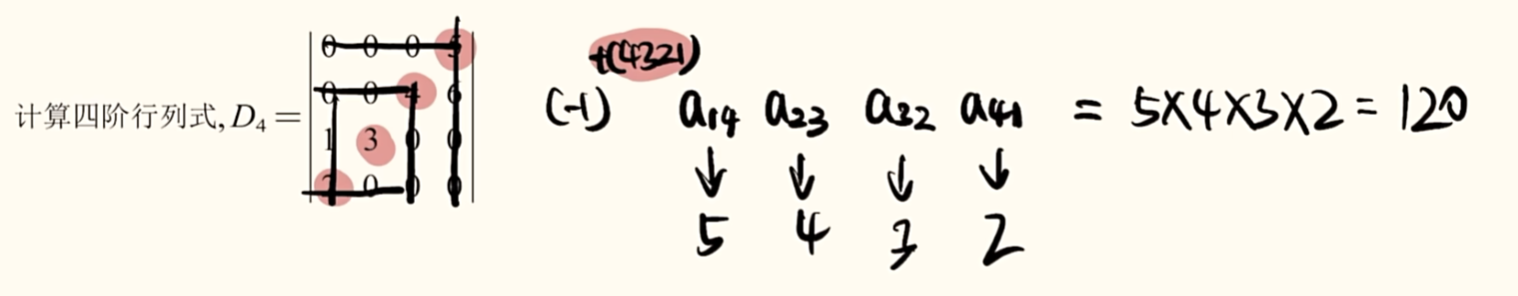 计算四阶行列式, D₄ =
0 0 0 5
0 0 4 6
1 3 0 0
2 0 0 0
(-1)^τ(4321) a₁₄ a₂₃ a₃₂ a₄₁ = 5×4×3×2 = 120
↓ ↓ ↓ ↓
5 4 3 2